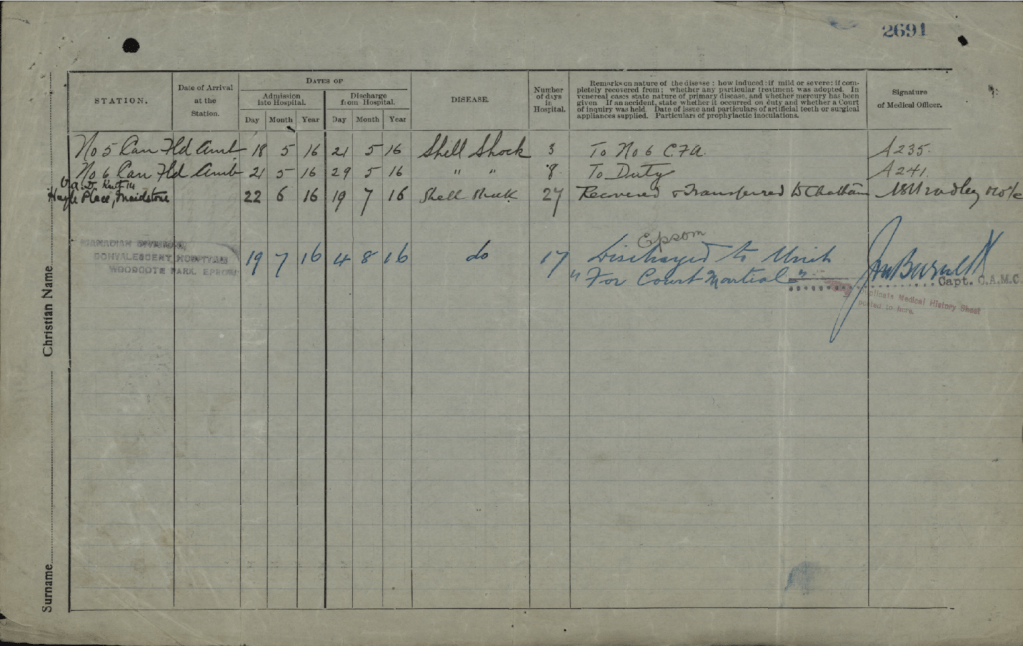 2691
DATES OF
STATION.
Date of Arrival at the Station.
Admission into Hospital.
Discharge from Hospital.
DISEASE.
Number of days in Hospital.
Remarks on nature of the disease: how induced: if mild or severe: if completely recovered from; whether any particular treatment was adopted. In venereal cases state nature of primary disease, and whether mercury has been given. If an accident, state whether it occurred on duty and whether a Court of Inquiry was held. Date of issue and particulars of artificial teeth or surgical appliances supplied. Particulars of prophylactic inoculations.
Signature of Medical Officer.
Day Month Year Day Month Year
No 5 Can Fld Amb 18 5 16 21 5 16 Shell Shock 3 To No. 6 C.F.A. A235.
No. 6 Can Fld Amb 21 5 16 29 5 16 " " 8 To Duty A241.
V.A.D.
Hayle Place, Maidstone 22 6 16 19 7 16 Shell Shock 27 Recovered & Transferred
CANADIAN
CONVALESCENT HOSPITAL
WOODCOTE PARK, EPSOM
19 7 16 4 8 16 do 17 Discharged to Unit
Epsom
"For Court Martial"
Capt. C.A.M.C.
Duplicate Medical History Sheet
posted in here.
Christian Name
Surname